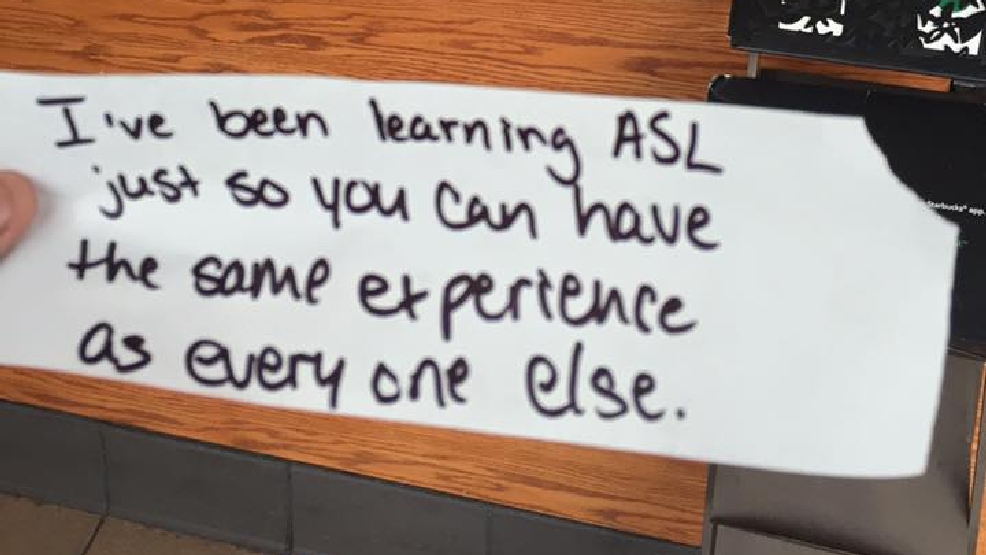 I've been learning ASL
just so you can have
the same experience
as every one else.
Starbucks® app.